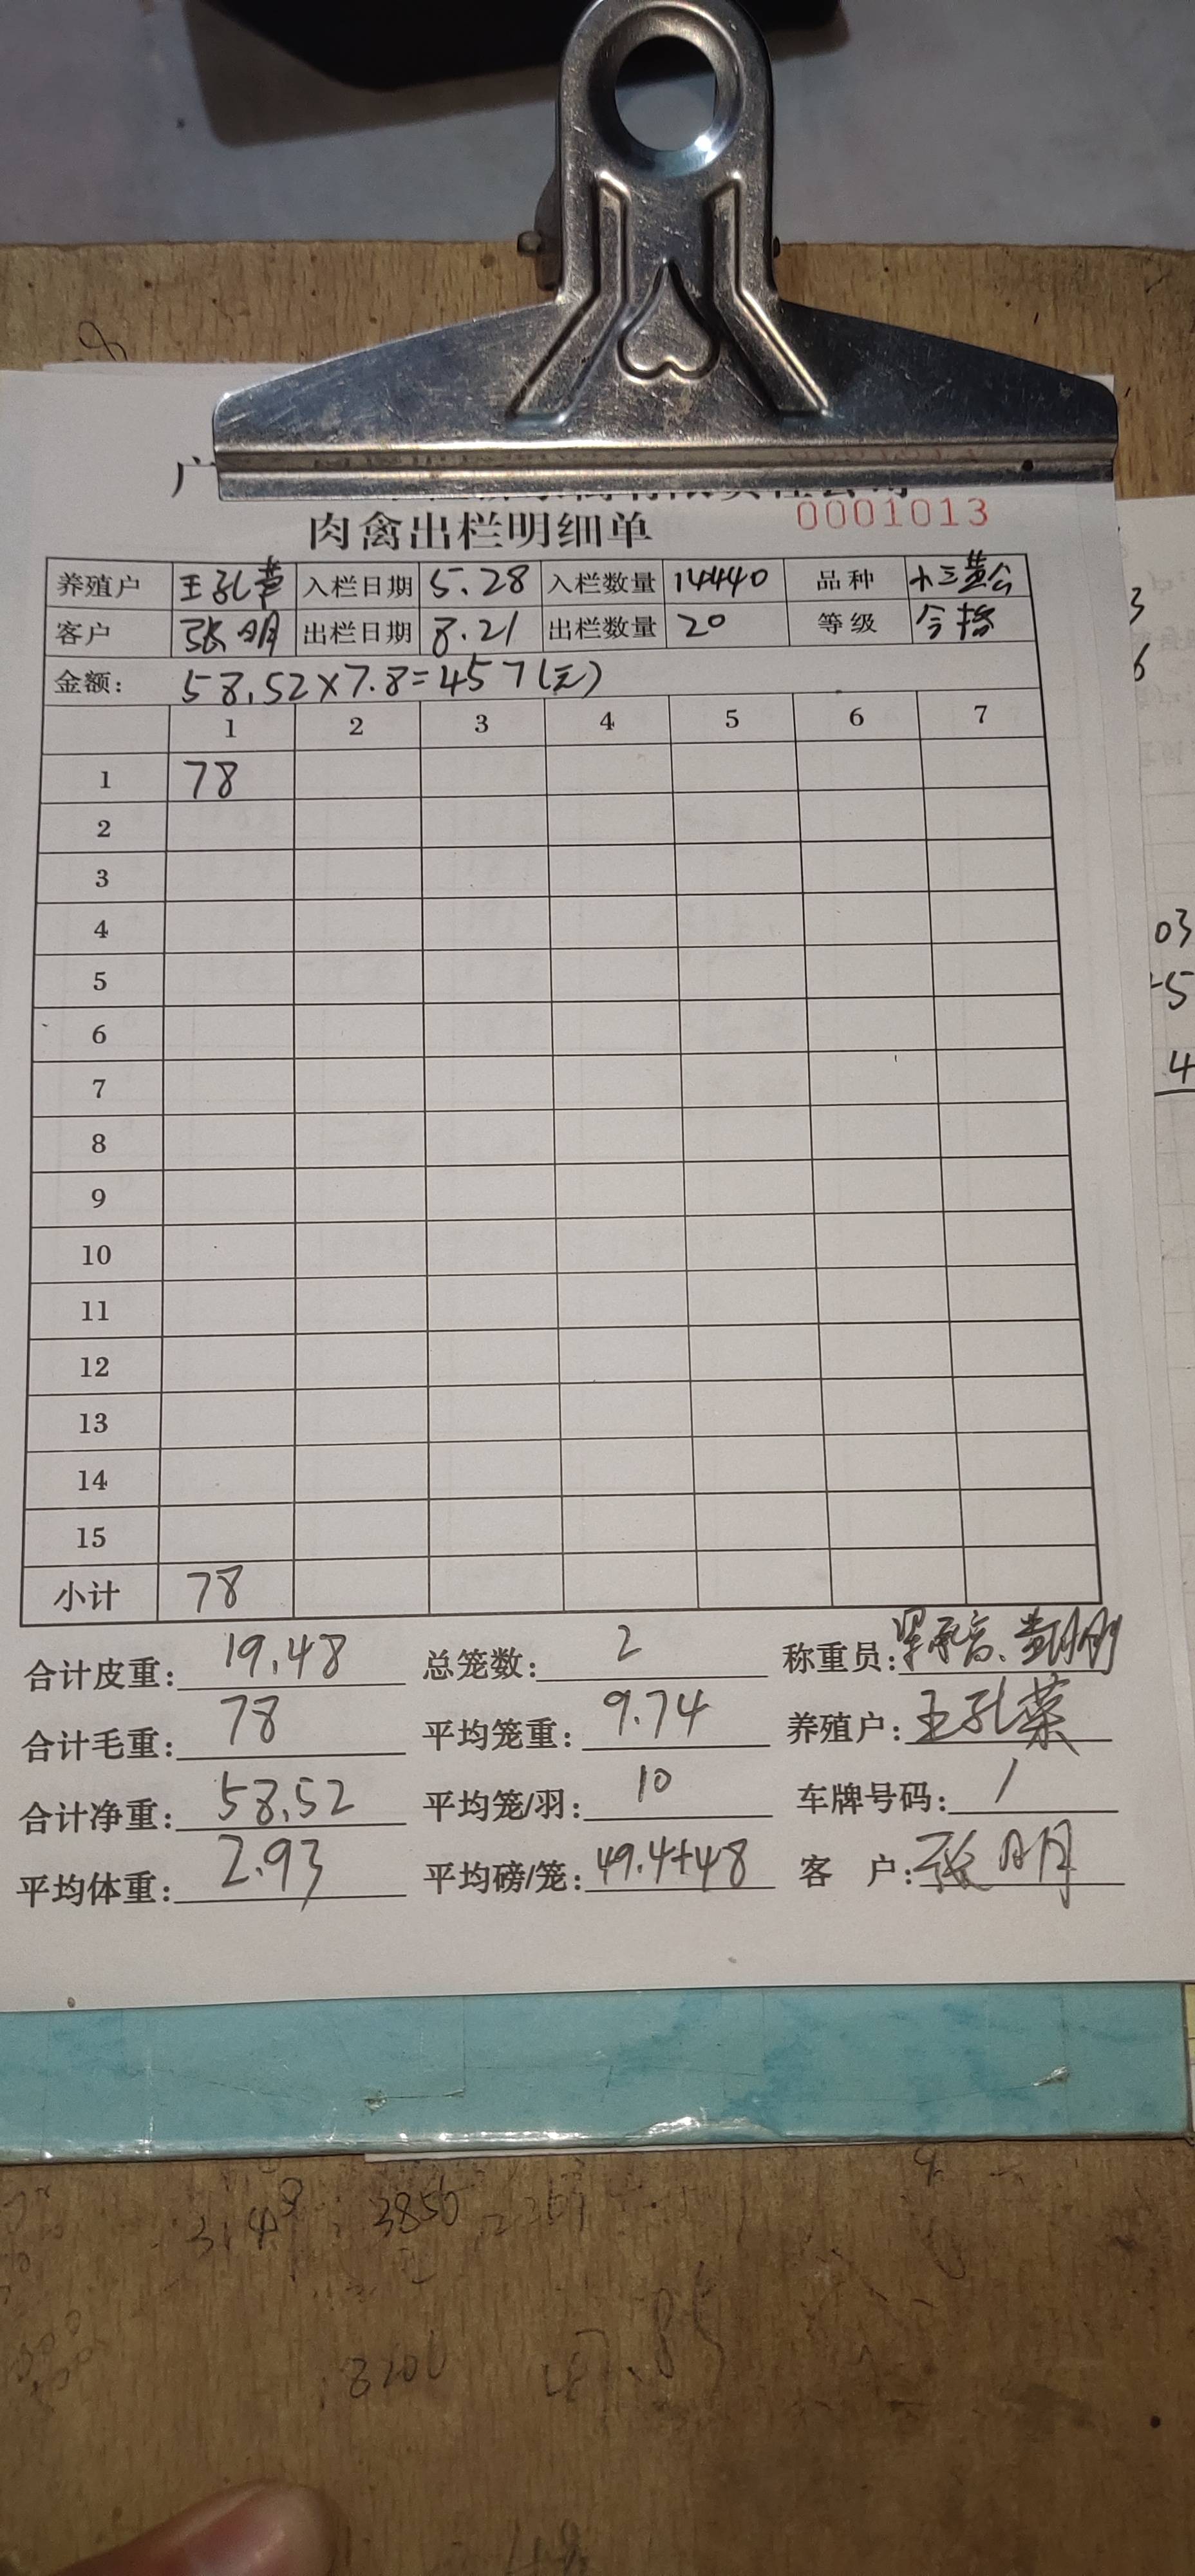 肉禽出栏明细单 0001013
养殖户 王孔菜 入栏日期 5.28 入栏数量 14440 品种 小三黄公
客户 张明 出栏日期 8.21 出栏数量 20 等级
金额: 58.52×7.8=457(元)
1 2 3 4 5 6 7
1 78
2
3
4
5
6
7
8
9
10
11
12
13
14
15
小计 78
合计皮重: 19.48 总笼数: 2 称重员:
合计毛重: 78 平均笼重: 9.74 养殖户: 王孔菜
合计净重: 58.52 平均笼/羽: 10 车牌号码: /
平均体重: 2.93 平均磅/笼: 49.4+48 客 户: 张明
03
4
3850